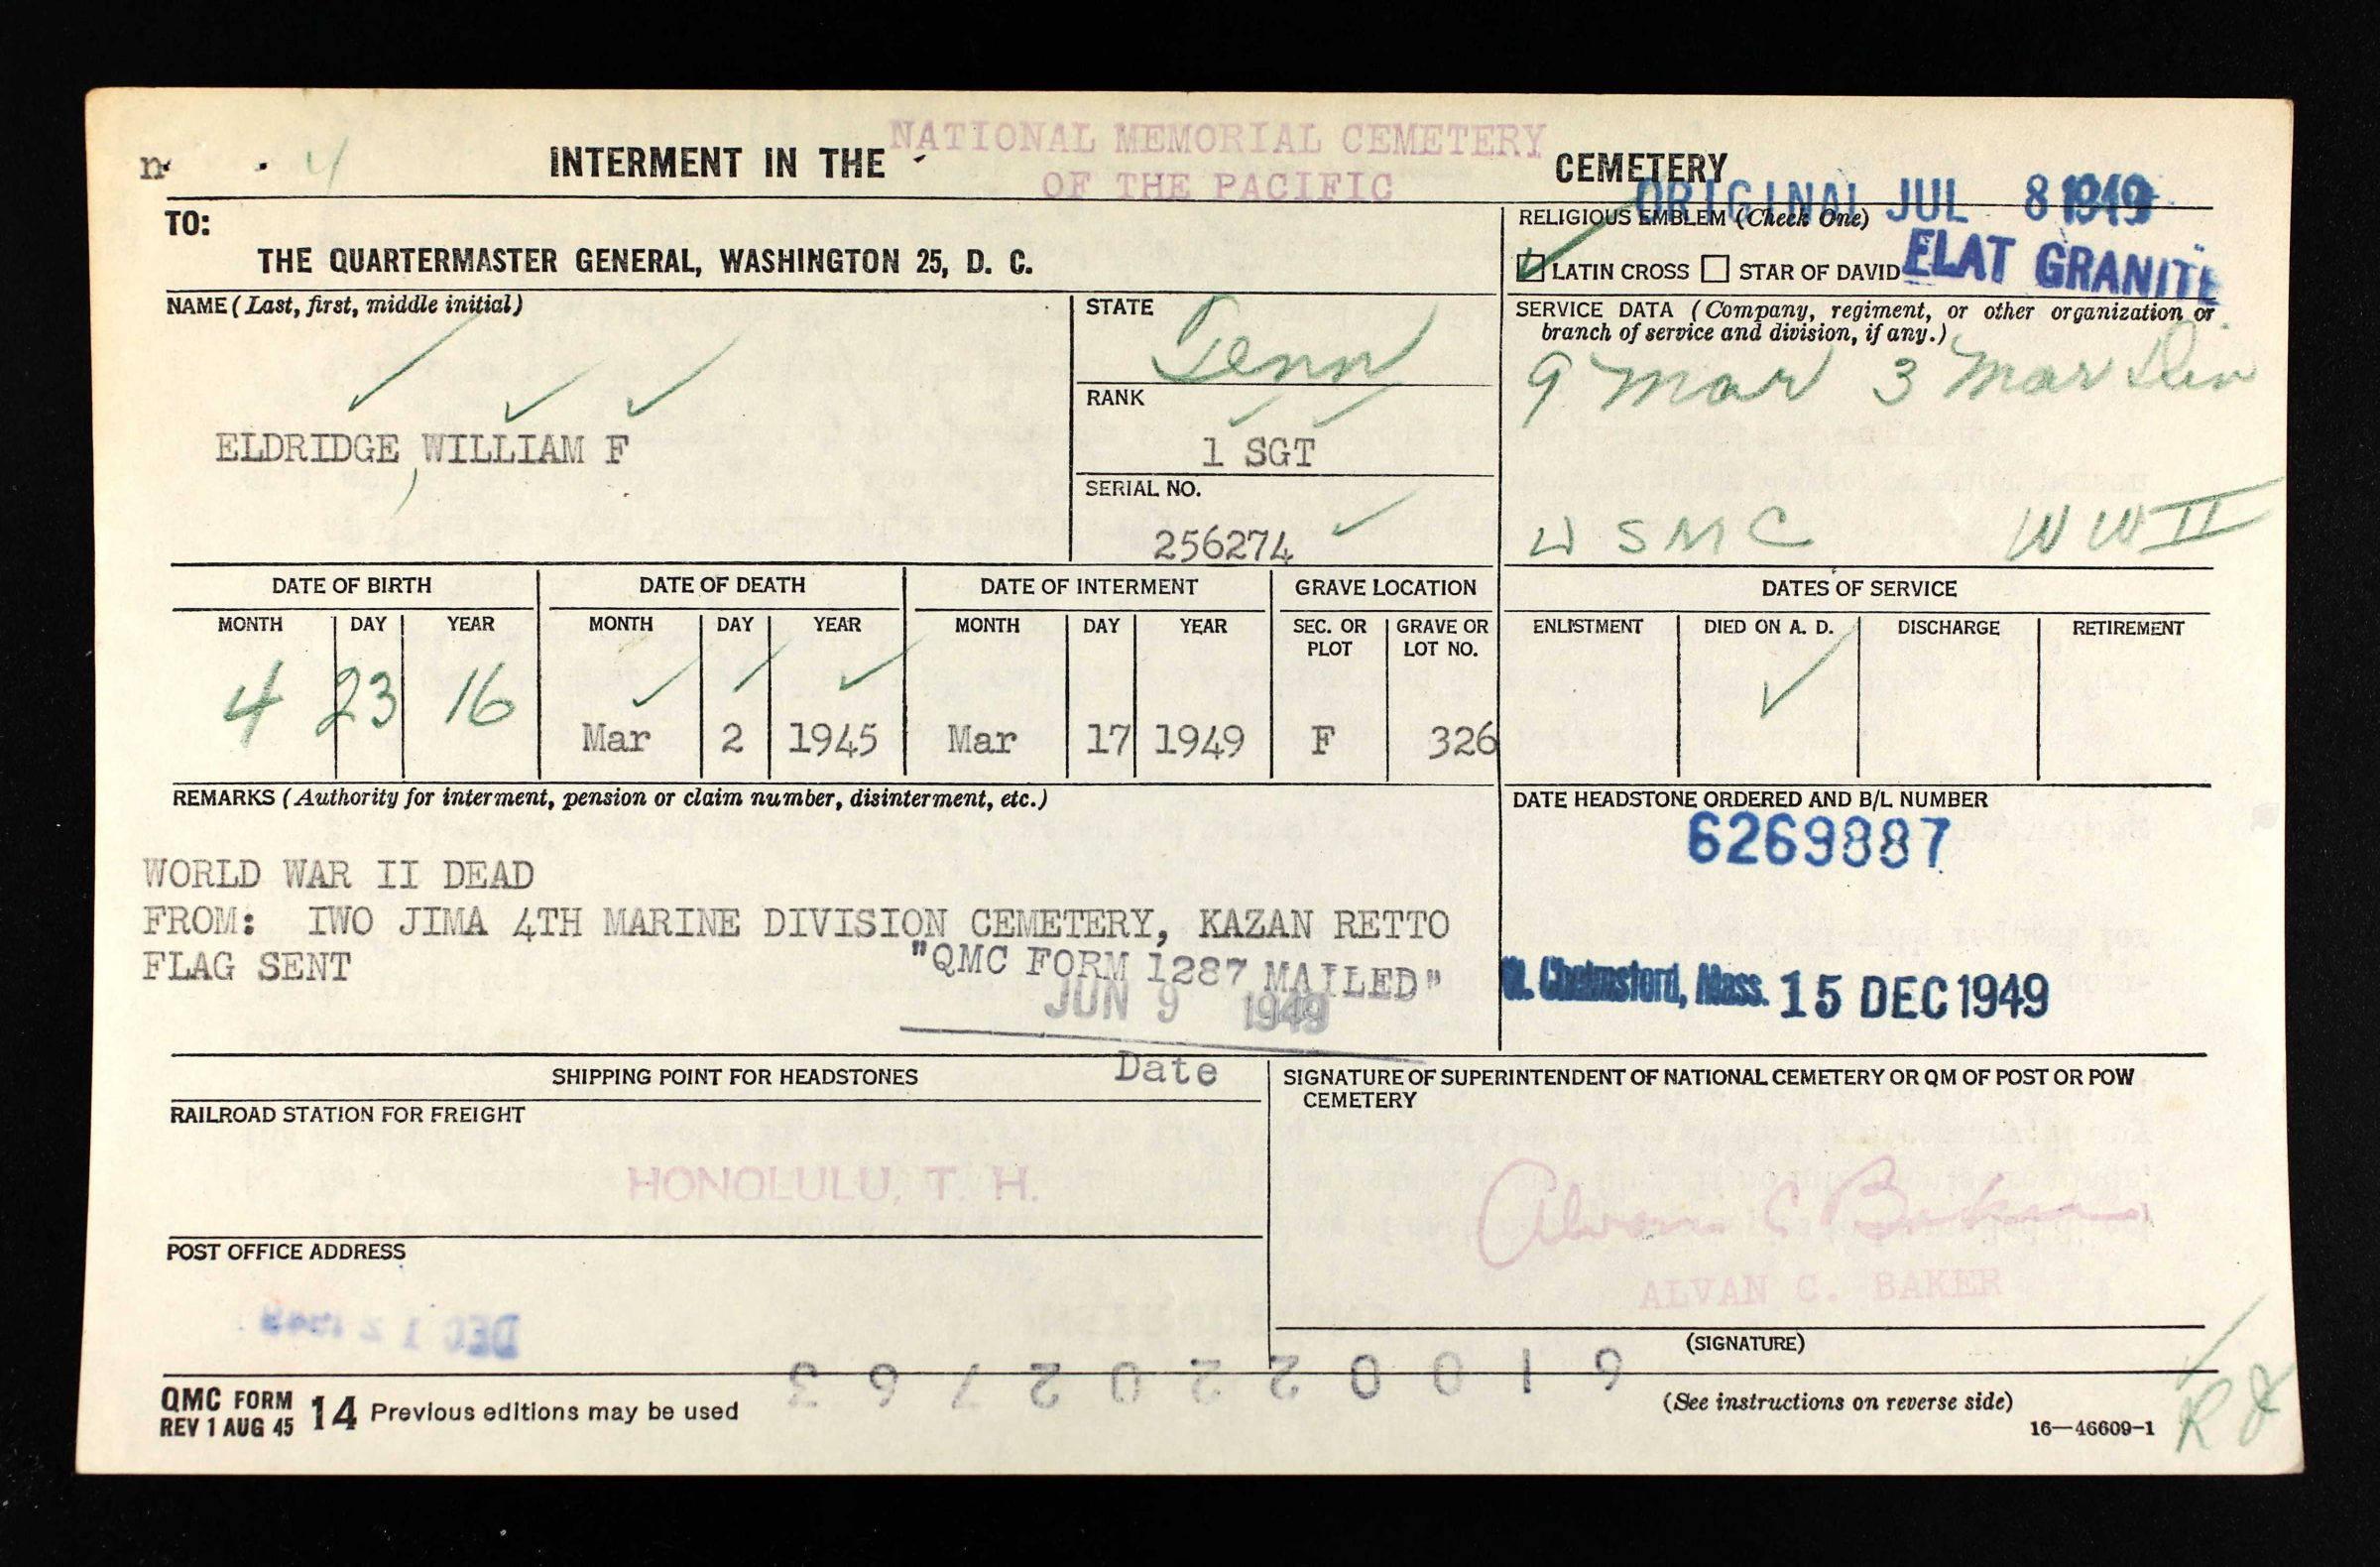 n 4
INTERMENT IN THE NATIONAL MEMORIAL CEMETERY OF THE PACIFIC CEMETERY
ORIGINAL JUL 8 1949
TO:
THE QUARTERMASTER GENERAL, WASHINGTON 25, D. C.
RELIGIOUS EMBLEM (Check One)
LATIN CROSS STAR OF DAVID
FLAT GRANITE
NAME (Last, first, middle initial)
ELDRIDGE, WILLIAM F
STATE
Tenn
RANK
1 SGT
SERIAL NO.
256274
SERVICE DATA (Company, regiment, or other organization or
branch of service and division, if any.)
9 Mar 3 Mar Div
USMC WWII
DATE OF BIRTH DATE OF DEATH DATE OF INTERMENT GRAVE LOCATION DATES OF SERVICE
MONTH DAY YEAR MONTH DAY YEAR MONTH DAY YEAR SEC. OR PLOT GRAVE OR LOT NO. ENLISTMENT DIED ON A. D. DISCHARGE RETIREMENT
4 23 16 Mar 2 1945 Mar 17 1949 F 326
REMARKS (Authority for interment, pension or claim number, disinterment, etc.)
WORLD WAR II DEAD
FROM: IWO JIMA 4TH MARINE DIVISION CEMETERY, KAZAN RETTO
FLAG SENT
"QMC FORM 1287 MAILED"
JUN 9 1949
Date
DATE HEADSTONE ORDERED AND B/L NUMBER
6269887
W. Chelmsford, Mass. 15 DEC 1949
SHIPPING POINT FOR HEADSTONES
RAILROAD STATION FOR FREIGHT
HONOLULU, T. H.
POST OFFICE ADDRESS
SIGNATURE OF SUPERINTENDENT OF NATIONAL CEMETERY OR QM OF POST OR POW
CEMETERY
Alvan C Baker
ALVAN C. BAKER
(SIGNATURE)
QMC FORM 14 Previous editions may be used
REV 1 AUG 45
(See instructions on reverse side)
16—46609-1